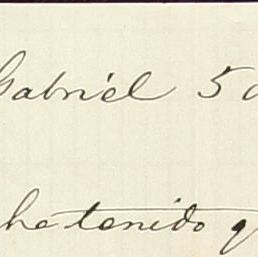 Gabriél 5
he tenido